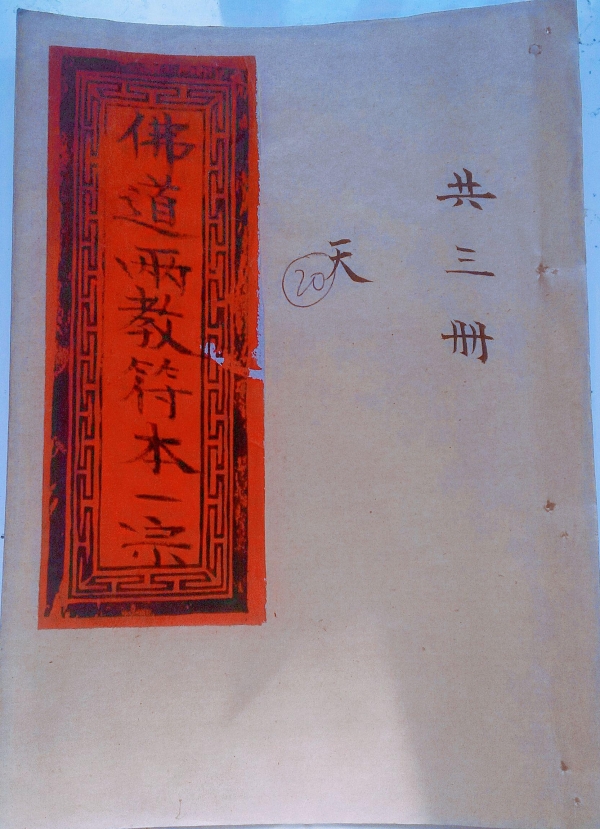 佛道兩教符本一宗
天
20
共三冊